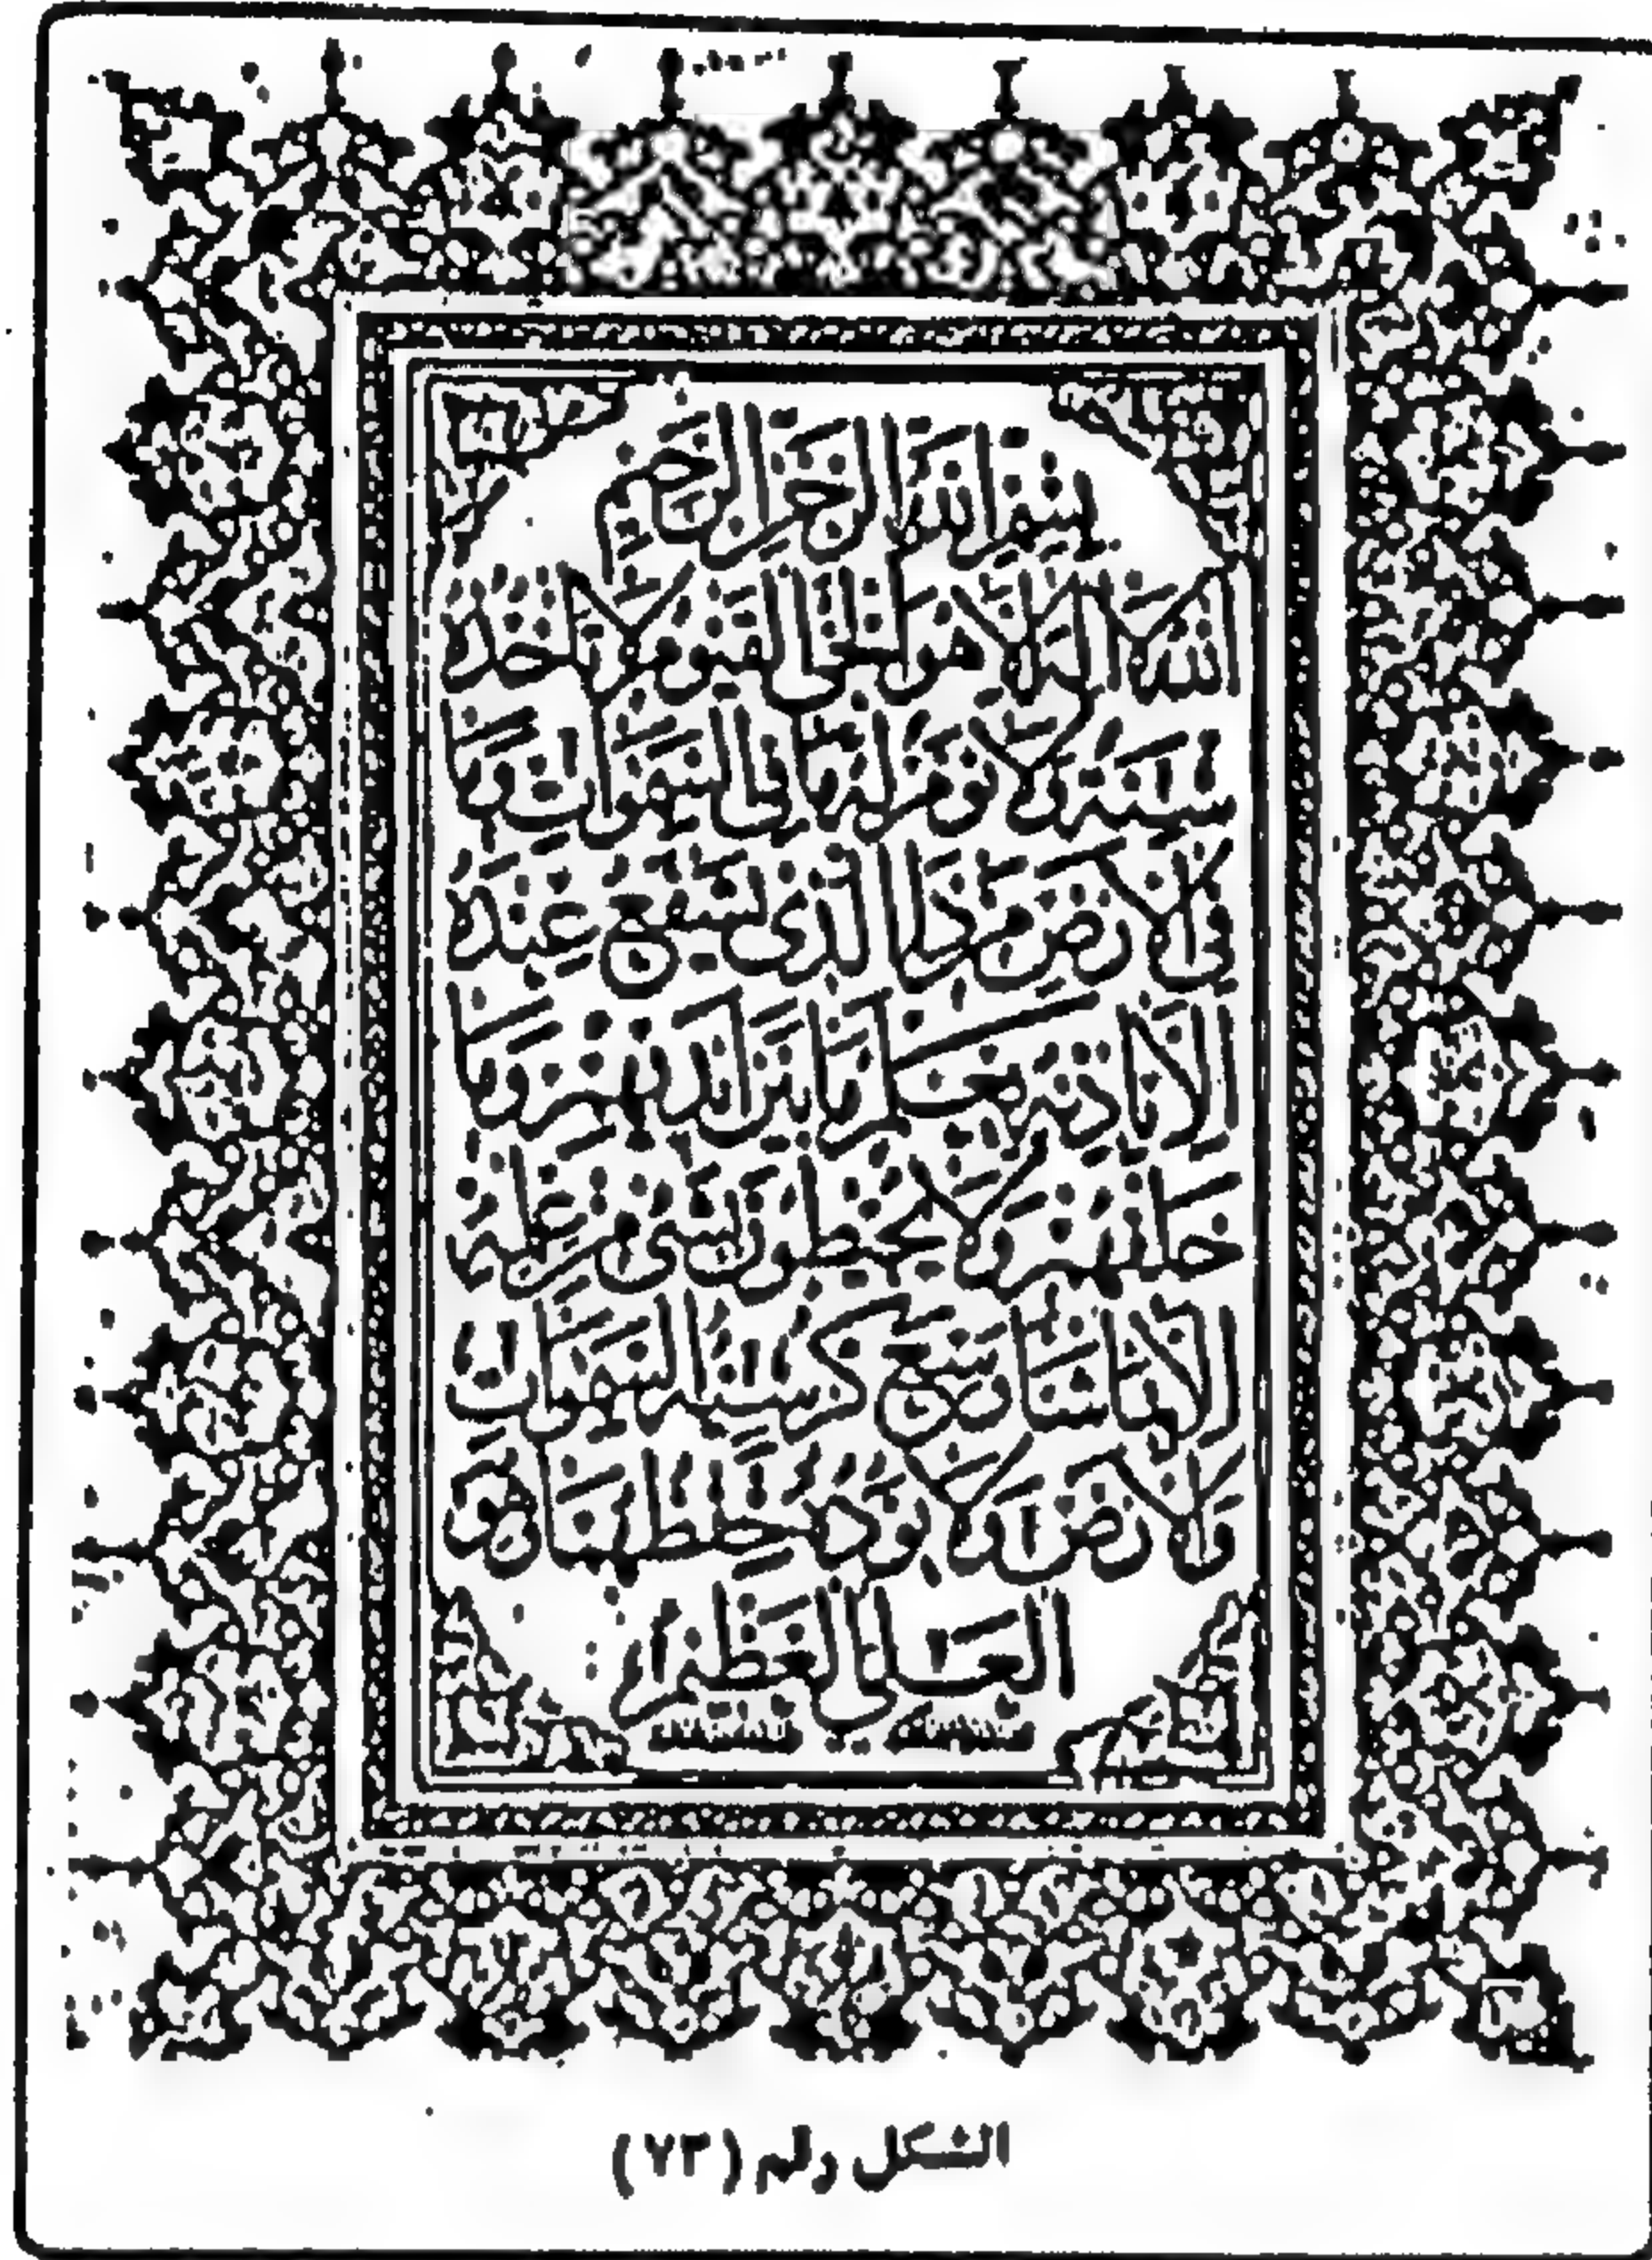 بسم الله الرحمن الرحيم
الله لا إله إلا هو الحي القيوم لا تأخذه
سنة ولا نوم له ما في السموات وما
في الأرض من ذا الذي يشفع عنده
إلا بإذنه يعلم ما بين أيديهم وما
خلفهم ولا يحيطون بشيء من علمه
إلا بما شاء وسع كرسيه السموات
والأرض ولا يؤده حفظهما وهو
العلي العظيم
الشكل رقم (٧٣)